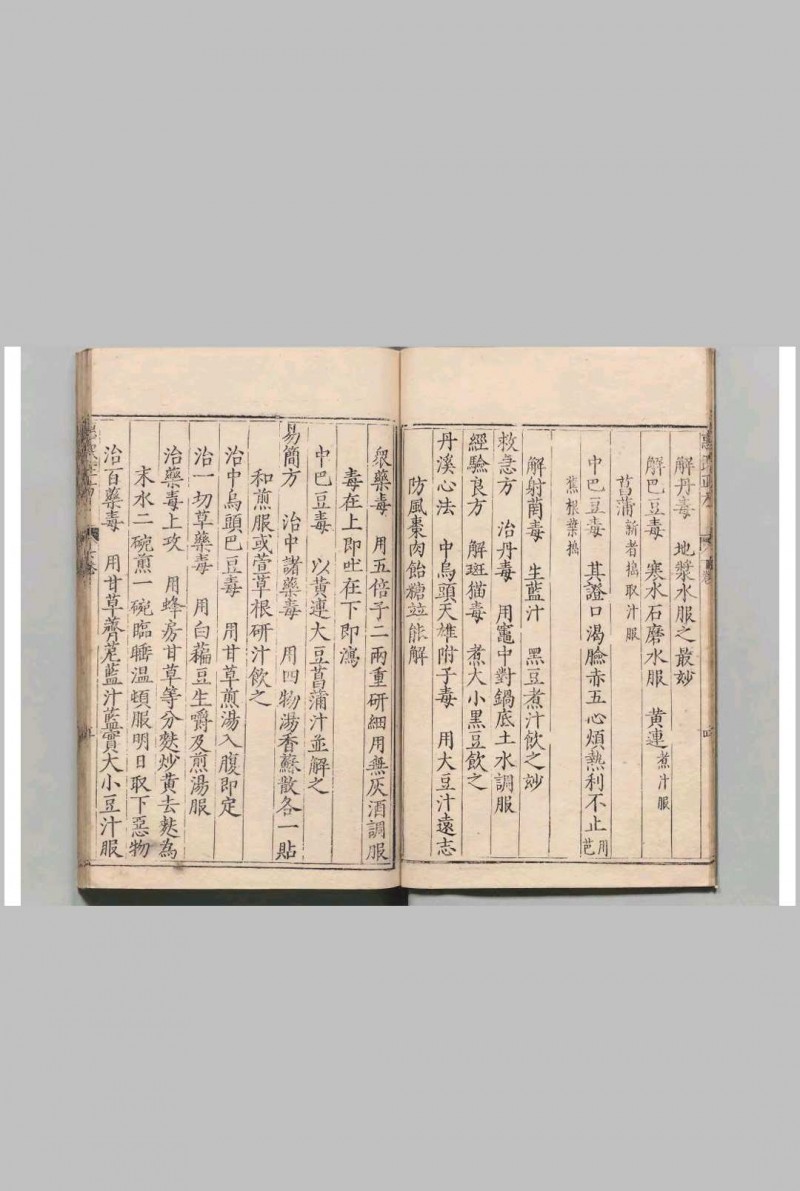 解丹毒　地漿水服之最妙
解巴豆毒　寒水石磨水服　黃連煮汁服
菖蒲新者搗取汁服
中巴豆毒　其證口渴臉赤五心煩熱利不止用芭
蕉根葉搗
解射菵毒　生藍汁　黑豆煮汁飲之妙
救急方　治丹毒　用竈中對鍋底土水調服
經驗良方　解斑猫毒　煮大小黑豆飲之
丹溪心法　中烏頭天雄附子毒　用大豆汁遠志
防風棗肉飴糖竝能解
衆藥毒　用五倍子二兩重研細用無灰酒調服
毒在上即吐在下即瀉
中巴豆毒　以黃連大豆菖蒲汁並解之
易簡方　治中諸藥毒　用四物湯香蘇散各一貼
和煎服或萱草根研汁飲之
治中烏頭巴豆毒　用甘草煎湯入腹即定
治一切草藥毒　用白藊豆生嚼及煎湯服
治藥毒上攻　用蜂房甘草等分麩炒黃去麩為
末水二碗煎一碗臨臥溫頓服明日取下惡物
治百藥毒　用甘草薺苨藍汁藍實大小豆汁服